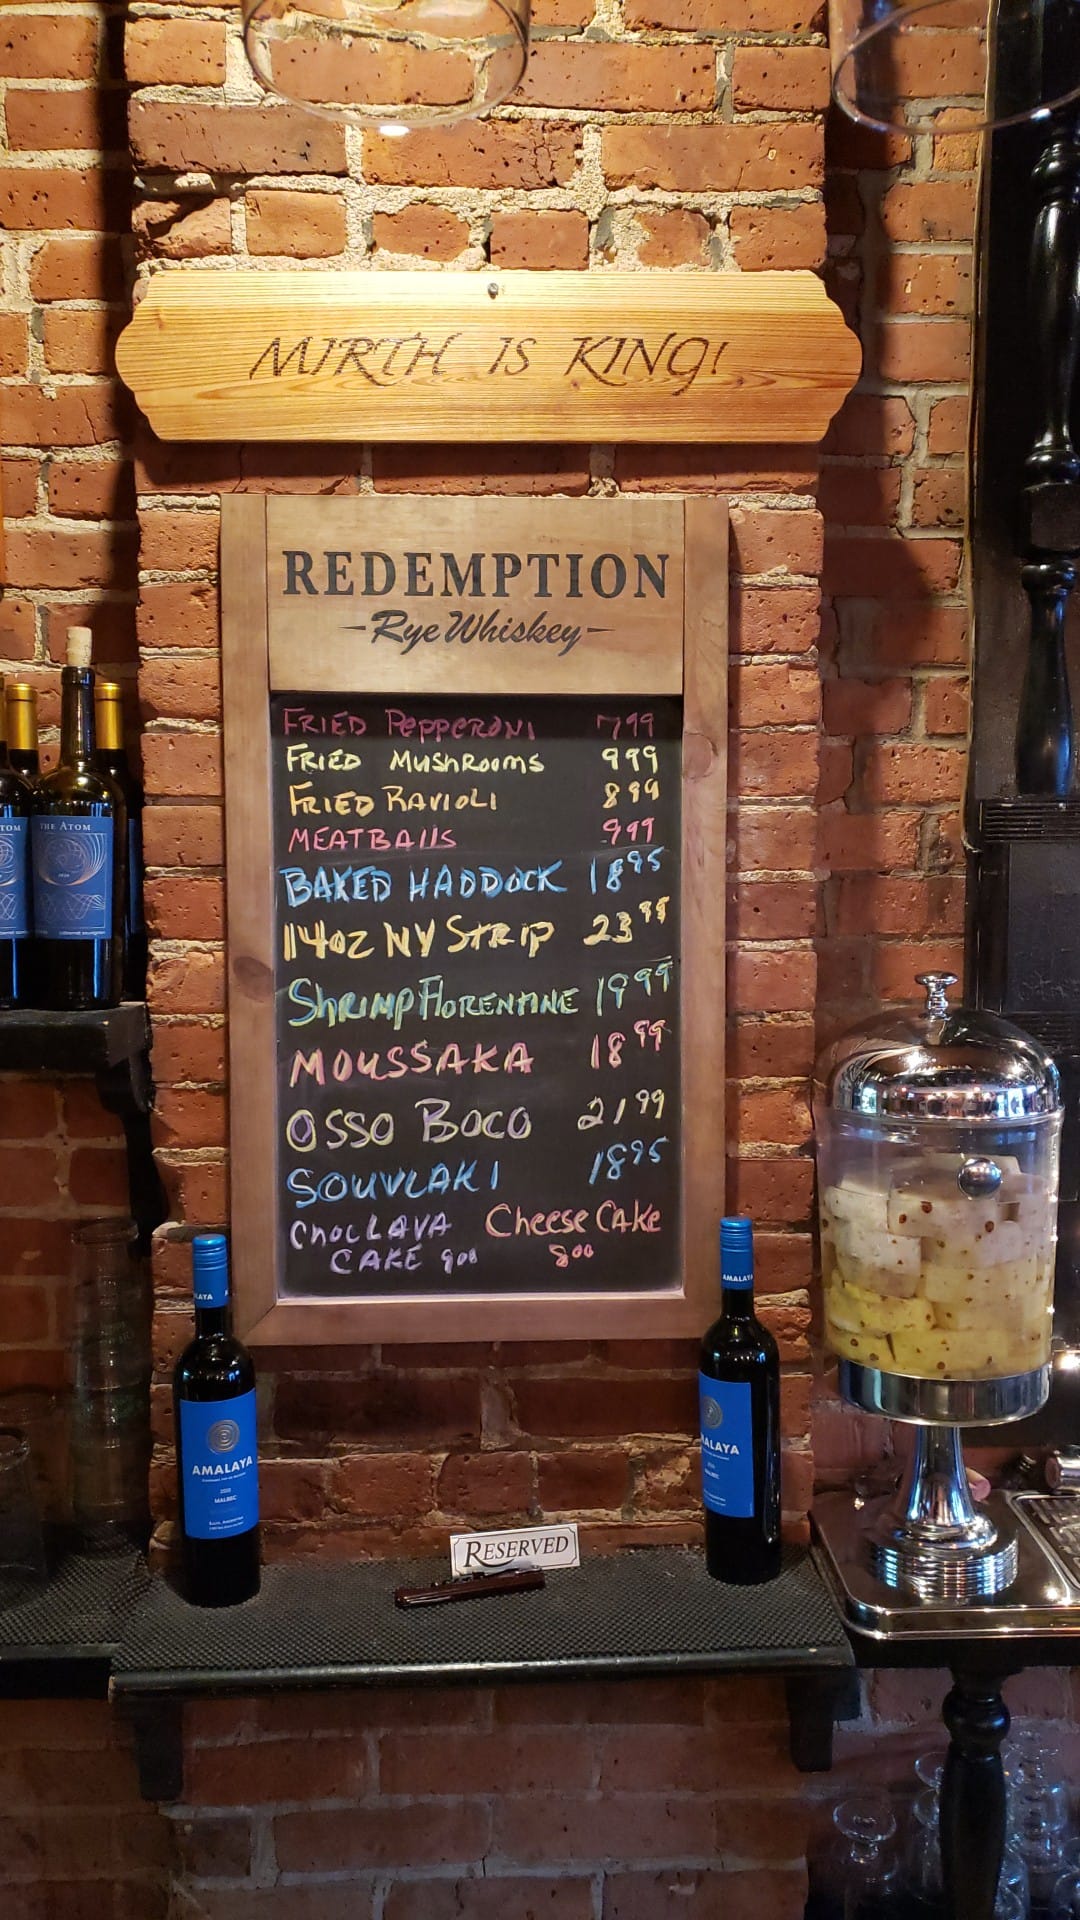 MIRTH IS KING!
REDEMPTION
-Rye Whiskey-
FRIED PEPPERONI 7 99
FRIED MUSHROOMS 9 99
FRIED RAVIOLI 8 99
MEATBALLS 9 99
BAKED HADDOCK 18 95
14OZ NY STRIP 23 95
SHRIMP FLORENTINE 19 99
MOUSSAKA 18 99
OSSO BOCO 21 99
SOUVLAKI 18 95
CHOC LAVA CAKE 9 00
CHEESE CAKE 8 00
TOM
THE ATOM
LAYA
AMALAYA
MALBEC
AMALAYA
ALAYA
MALBEC
RESERVED